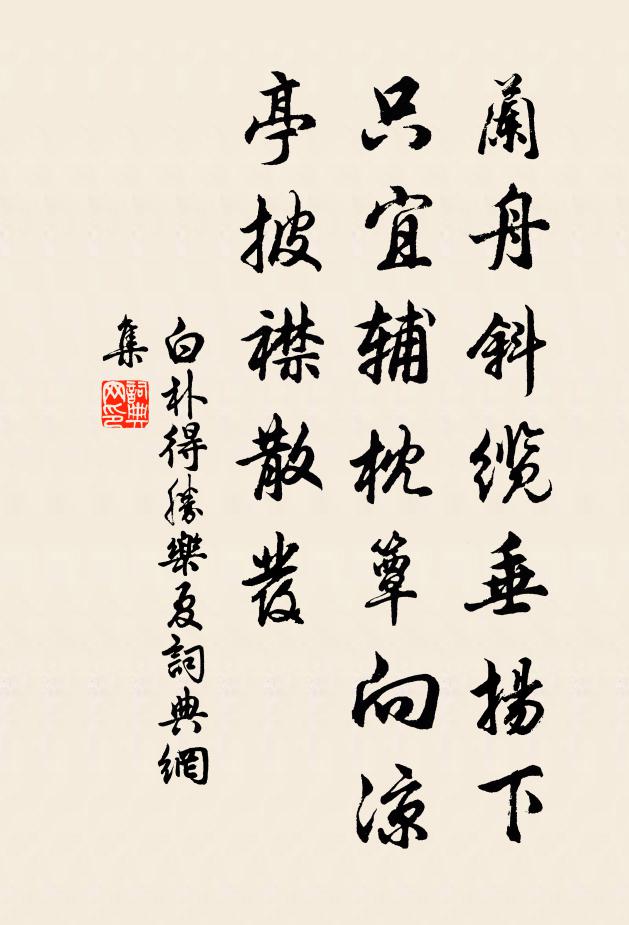 蘭舟斜纜垂揚下
只宜辅枕簟向涼
亭披襟散發
白朴得勝樂夏詞典網
集
詞典
网印